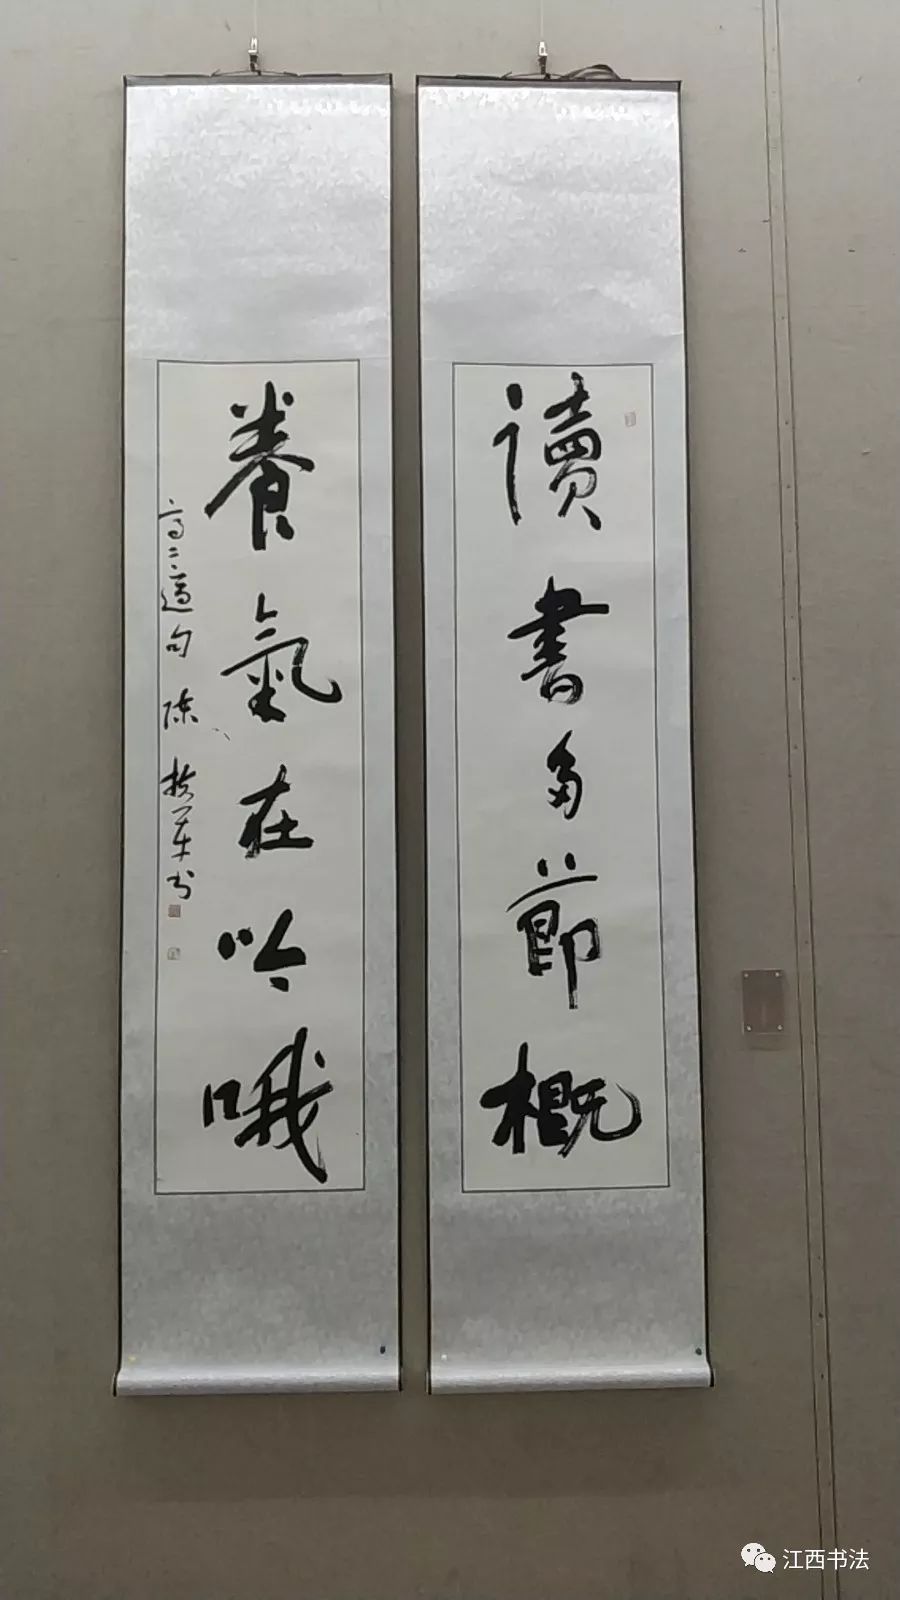 讀書多節概
養氣在吟哦
高二適句 陳 書
江西书法